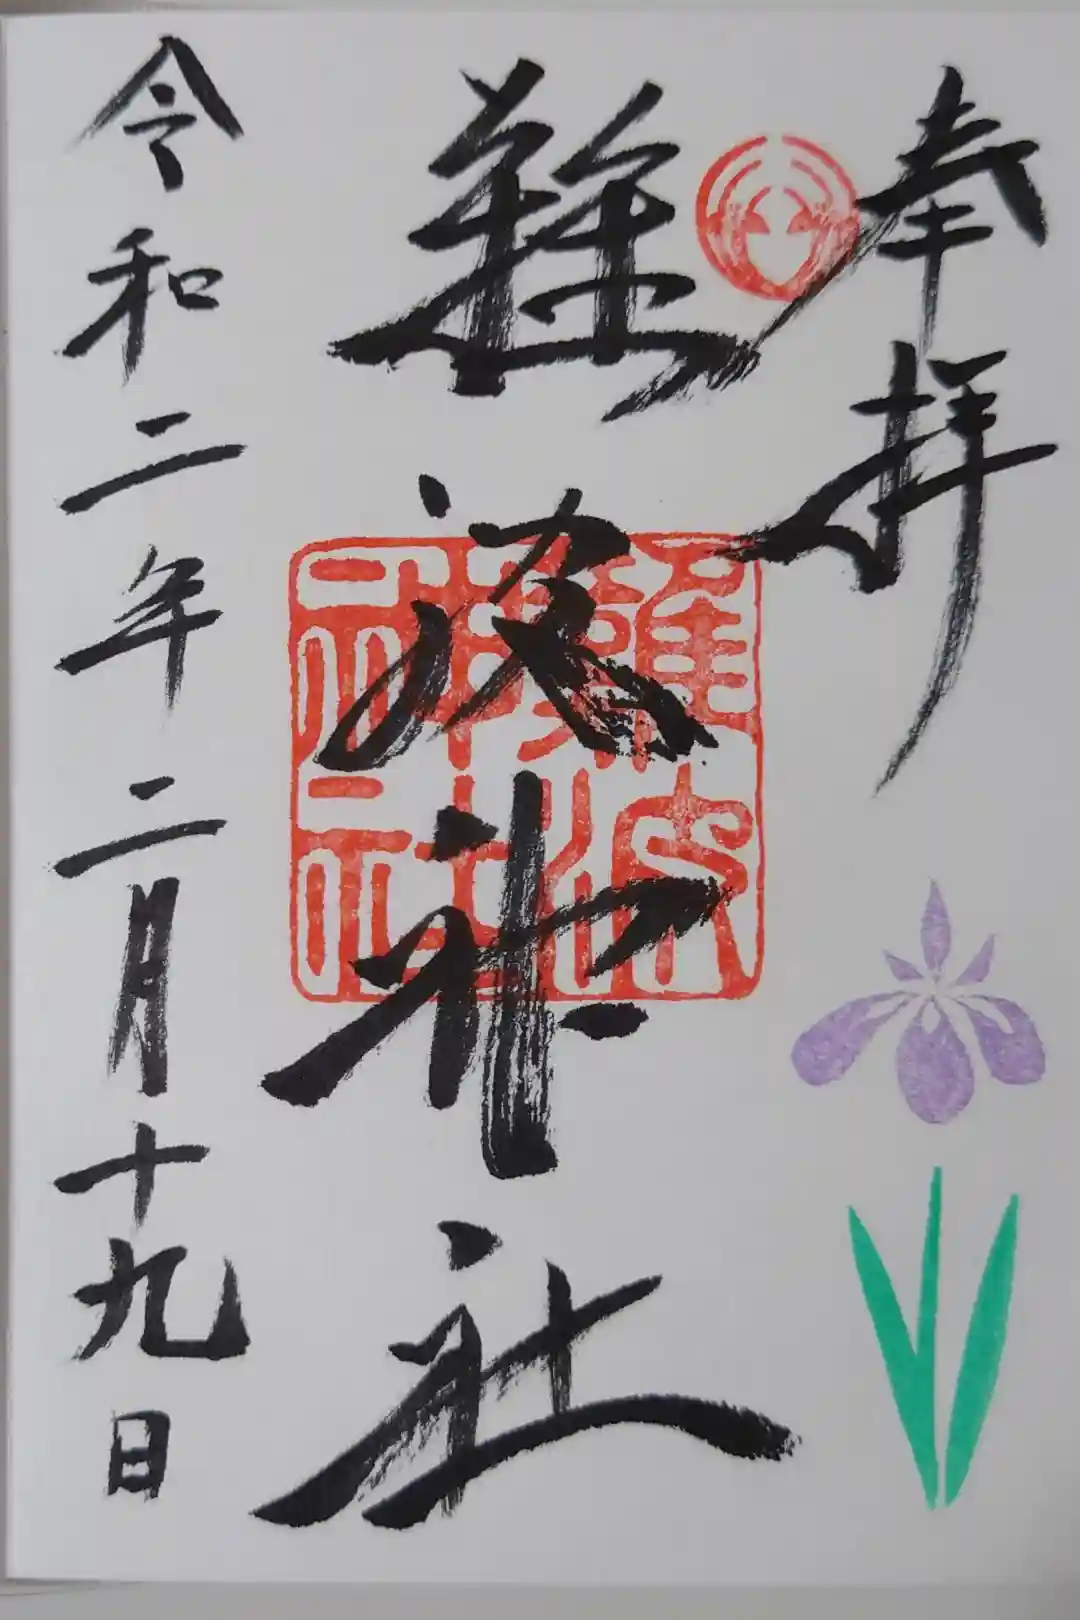 奉拝
難波神社
難波
神社
令和二年二月十九日